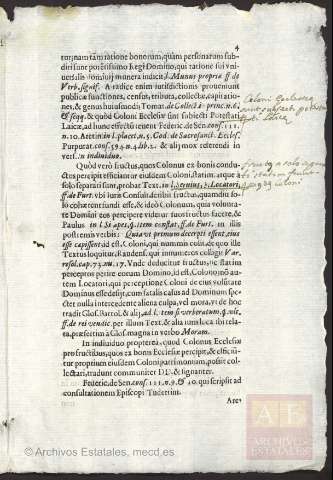 4
tur, nam tam ratione bonorum, quàm personarum sub-
diti sunt potentissimo Regi Domino, qui ratione sui vni-
versalis Dominij munera indicit l. Munus propriè ff. de
Verb. signif. A radice enim iurisdictionis proveniunt
publicæ functiones, census, tributa, collectæ, capitatio-
nes, & genus huiusmodi Tomat. de Collect. in princ. n. 6.
& seqq. & quòd Coloni Ecclesiæ sint subiecti Potestati
Laicæ, ad hunc effectũ tenent Federic. de Sen. cons. 111.
Purpurat. cons. 594. & alij mox referendi in
vers. in individuo.
Quòd verò fructus, quos Colonus ex bonis condu-
ctis percipit efficiantur eiusdem Coloni statim, atque à
solo separati sunt, probat Text. in l. Si servus, §. Locatori,
ff. de Furt. vbi Iuris Consult. de ribus fructus, quamdiu so-
lo cohærent fundi esse, & ideò Colonum, quia volunta-
te Domini eos percipere videtur suos fructus facere, & 
Paulus in l. Si apes, §. item constat, ff. de Furt. in illis
postremis verbis: Quia vt primùm decerpti essent, eius
esse cœpissent ad est, Coloni, qui nummis colit, de quo ille
Textus loquitur,
Vnde deducitur fructus, hac statim
perceptos perire eorum Domino, id est, Colono, nõ au-
tem Locatori, qui perceptione Coloni de eius voluntate
Dominus esse desijt, cum fatalis casus ad Dominum spe-
ctet nulla intercedente aliena culpa, vel mora, vt de hoc
tradit Glos. Bartol. & alij, ad l. item si verberatum, §. vlt.
ff. de rei vendic. per illum Text. & alia iura loca ibi rela-
ta, præsertim à Glos. magna in verbo Moram.
In individuo propterea, quod Colonus Ecclesiæ
pro fructibus, quos ex bonis Ecclesiæ percipit, & effici-
tur proprium eiusdem Coloni patrimonium, possit col-
lectari, tradunt communiter DD. & signanter.
Federic. de Sen. cons. 111. n. 9. & 10. qui scripsit ad
consultationem Episcopi Tudertini.
Are-
Coloni Ecclesiæ
sunt subiecti potesta
ti Laicæ
fructus a solo separa
ti statim fiunt
Coloni
© Archivos Estatales, mecd.es
AE
ARCHIVOS
ESTATALES